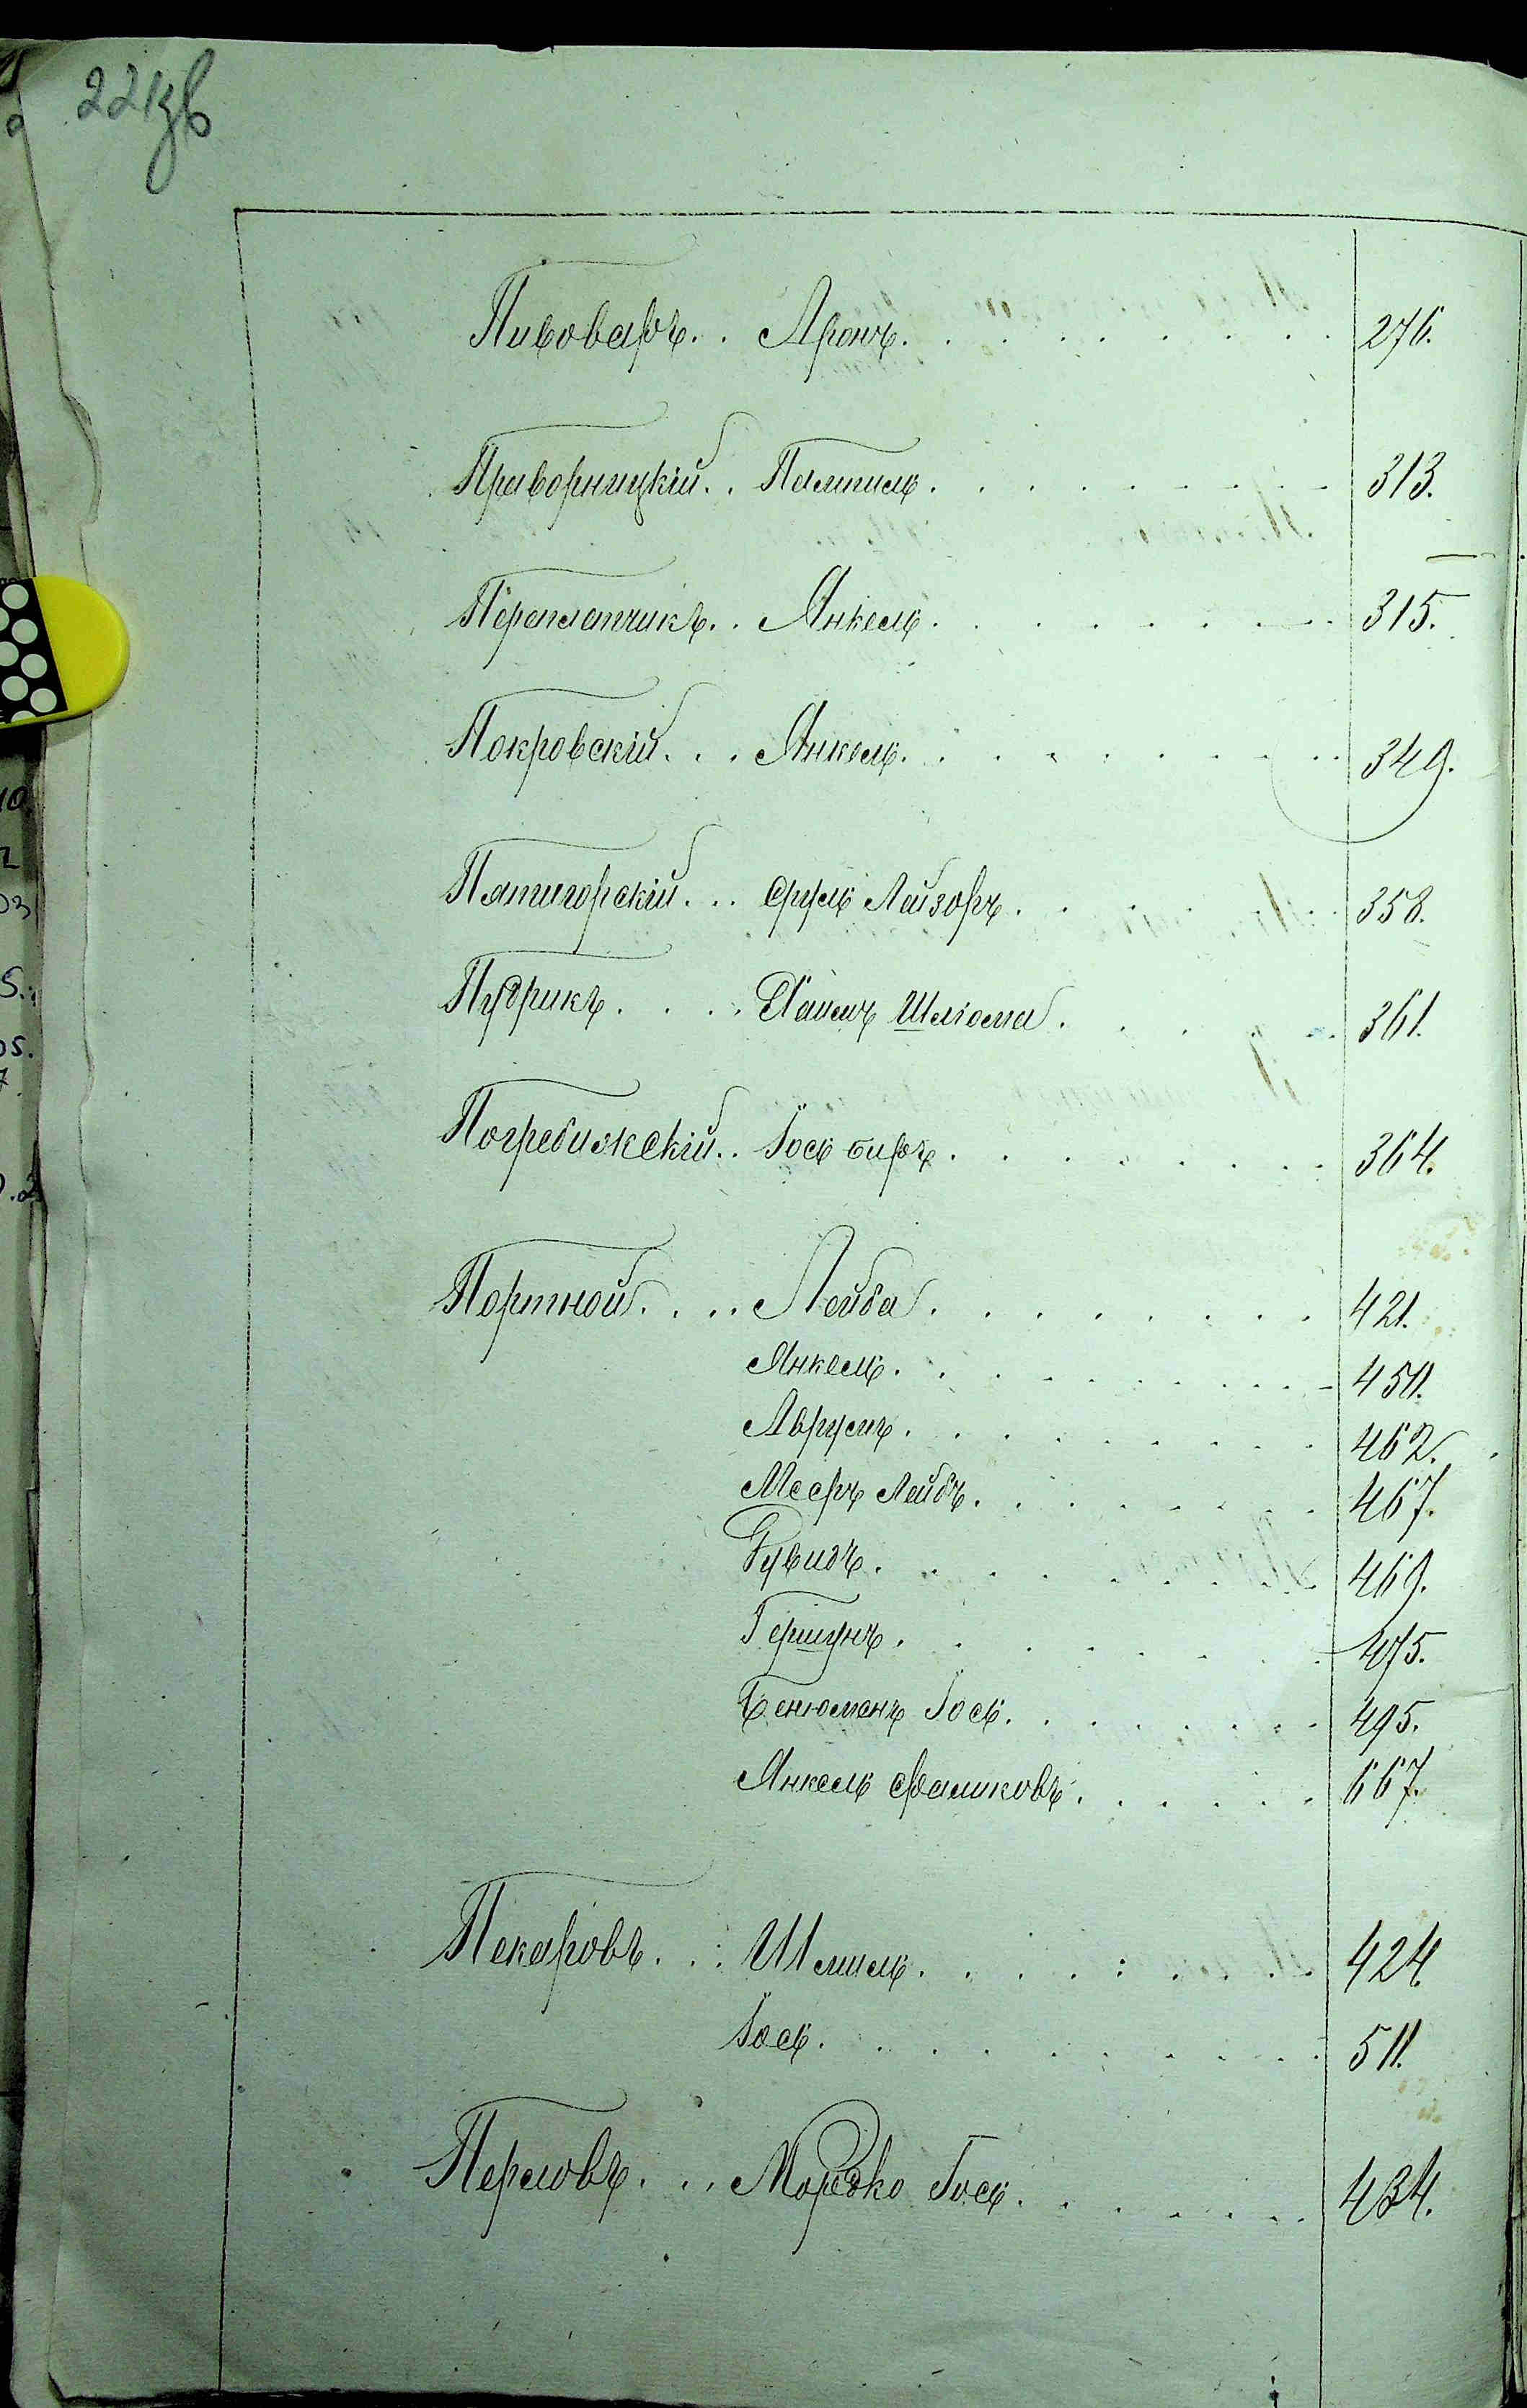 221зв
Пивоваръ... Аронъ. 276.
Праворницкій.. Палтиль. 313.
Переплетчикъ.. Янкель. 315.
Покровскій... Янкель. 349.
Пятигорскій... Сруль Лейзоръ. 358.
Пудрикъ.... Хаимъ Шлиома. 361.
Погребижскій.. Іось Биръ. 364.
Портной.... Лейба. 421.
Янкель. 450.
Аврумъ. 462.
Мееръ Лейбъ. 467.
Рувинъ. 469.
Гершунъ. 475.
Бенюменъ Іось. 495.
Янкель Фальковъ. 667.
Пекаровъ... Шмиль. 424.
Іось. 511.
Перловъ... Мордко Іось. 434.